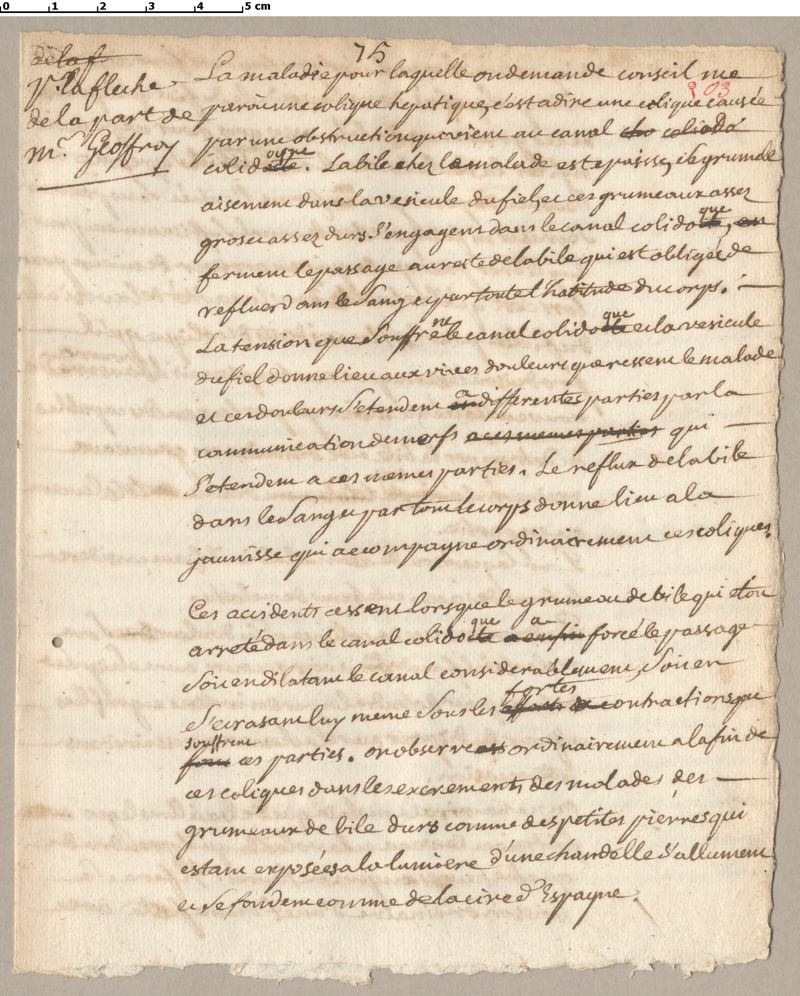 0 1 2 3 4 5 cm
75
203
de la f
pr. la fleche
de la part de
mr. Geoffroy
La maladie pour laquelle on demande conseil me
paroit une colique hepatique, c'est a dire une colique causée
par une obstruction qui vient au canal
colidoque. La bile chez le malade est epaisse, elle se grumele
aisement dans la vesicule du fiel, et ces grumeaux assez
gros et assez durs s'engagent dans le canal colidoque,
ferment le passage au reste de la bile qui est obligée de
refluer dans le sang et par toute l'habitude du corps.
La tension que souffrent le canal colidoque et la vesicule
du fiel donne lieu aux vives douleurs que ressent le malade
et ces douleurs s'etendent a differentes parties par la
communication des nerfs a ces memes parties qui
s'etendent a ces memes parties. Le reflux de la bile
dans le sang et par tout le corps donne lieu a la
jaunisse qui accompagne ordinairement ces coliques.
Ces accidents cessent lorsque le grumeau de bile qui etoit
arreté dans le canal colidoque a enfin a forcé le passage
soit en dilatant le canal considerablement, soit en
s'ecrasant luy meme sous les fortes contractions que
souffrent
font ces parties. on observe ordinairement a la fin de
ces coliques dans les excrements des malades des
grumeaux de bile durs comme des petites pierres qui
estant exposées a la lumiere d'une chandelle s'allument
et se fondent comme de la cire d'Espagne.